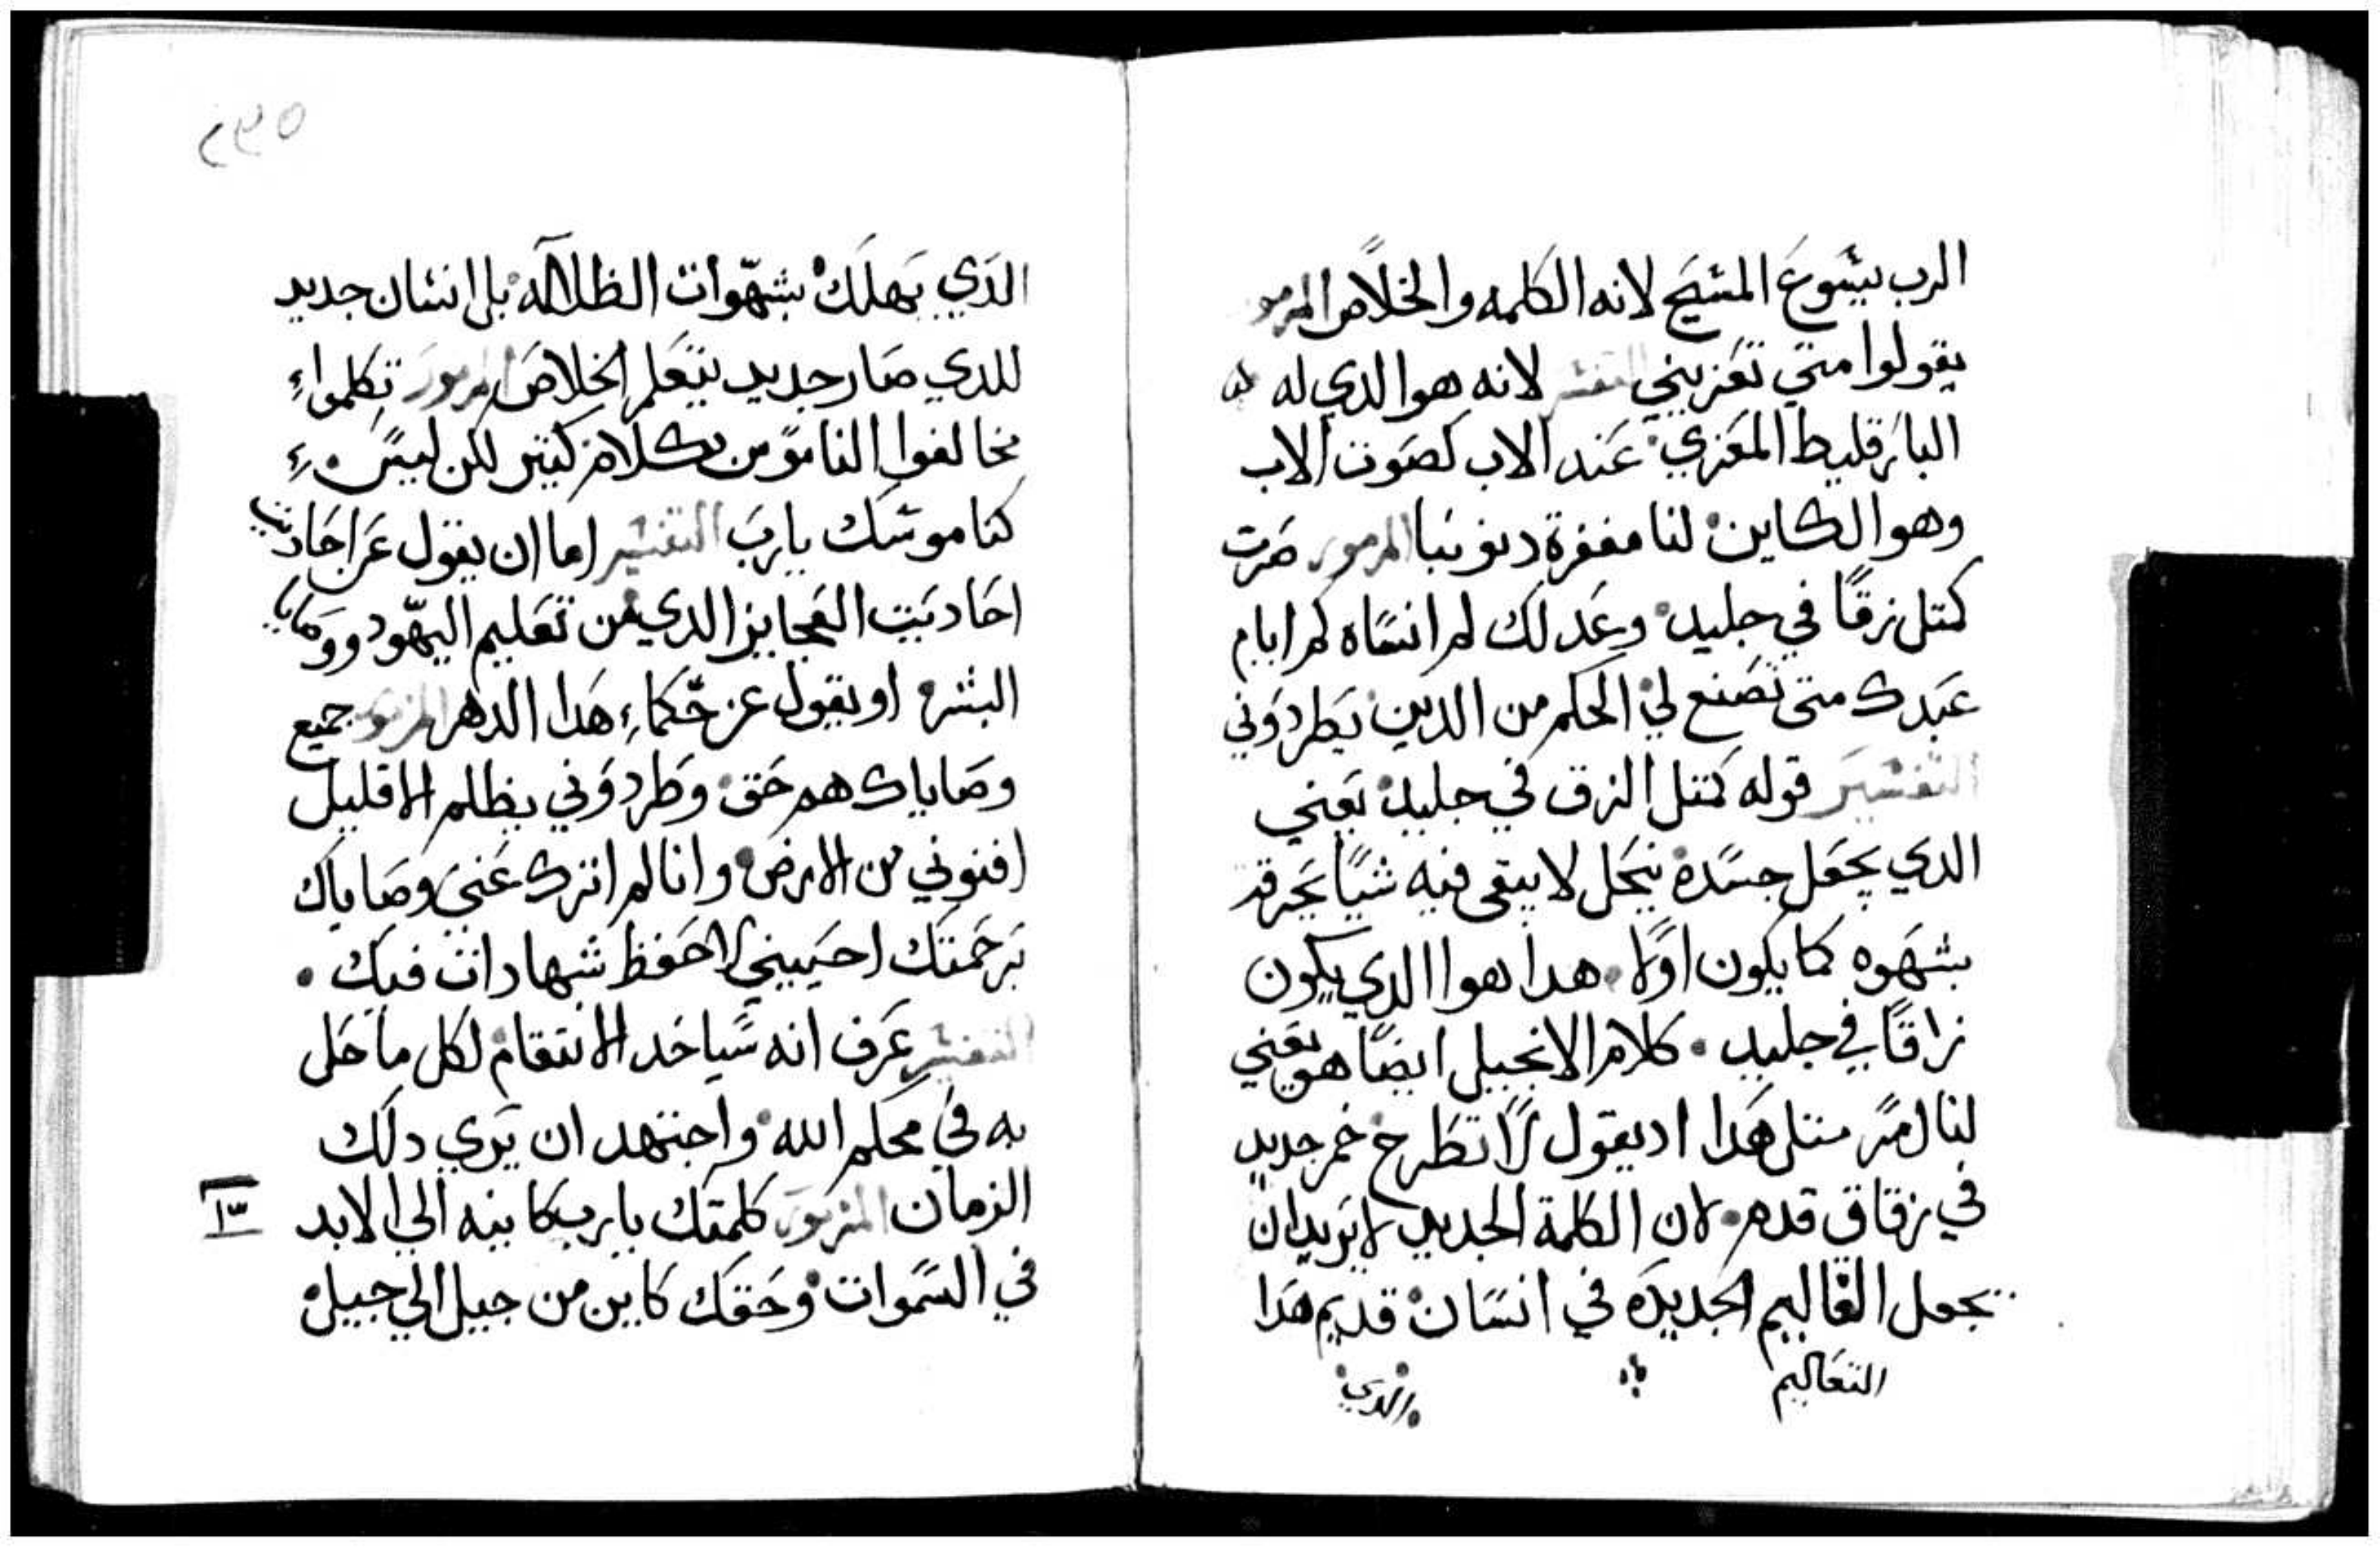 الرب يسوع المسيح لانه الكلمه والخلاص المزمور
يقولوا متي تعزيني التفسير لانه هوا الدي له
البارقليط المعزي عند الاب كصوت الاب
وهوا الكاين لنا مغفرة دنوبنا المزمور صرت
كتل زقًا في جليد وعدلك لم انساه كم ايام
عبدك متى تصنع لي الحكم من الدين يطردوني
التفسير قوله كمتل الزق في جليد يعني
الدي يجعل جسده ينحل لا يبقى فيه شيًا يحرقه
بشهوه كما يكون اولا هدا هوا الدي يكون
زاقًا في جليد كلام الانجيل ايضًا هو يعني
لنا رمز متل هدا اد يقول لا تطرح خمر جديد
في زقاق قدم لان الكلمة الجديد لا يريد ان
يجعل التعاليم الجديده في انسان قديم هدا
التعاليم
الدي
٥٩٢
الدي يهلك بشهوات الظلاله بل انسان جديد
للدي صار جديد يتعلم الخلاص المزمور تكلموا
مخالفوا الناموس بكلام كتير لكن ليس
كناموسك يا رب التفسير اما ان يقول عن احاديت
احاديت العجايز الدي من تعليم اليهود ووصايا
البشر او يقول عن حكماء هدا الدهر المزمور جميع
وصاياك هم حق وطردوني بظلم الا قليل
افنوني من الارض وانا لم اترك عني وصاياك
برحمتك احييني لاحفظ شهادات فيك
التفسير عرف انه سياخد الانتقام لكل ما حل
به في محكم الله واجتهد ان يري دلك
الزمان المزمور كلمتك يا رب كاينه الي الابد
في السموات وحقك كاين من جيل الي جيل